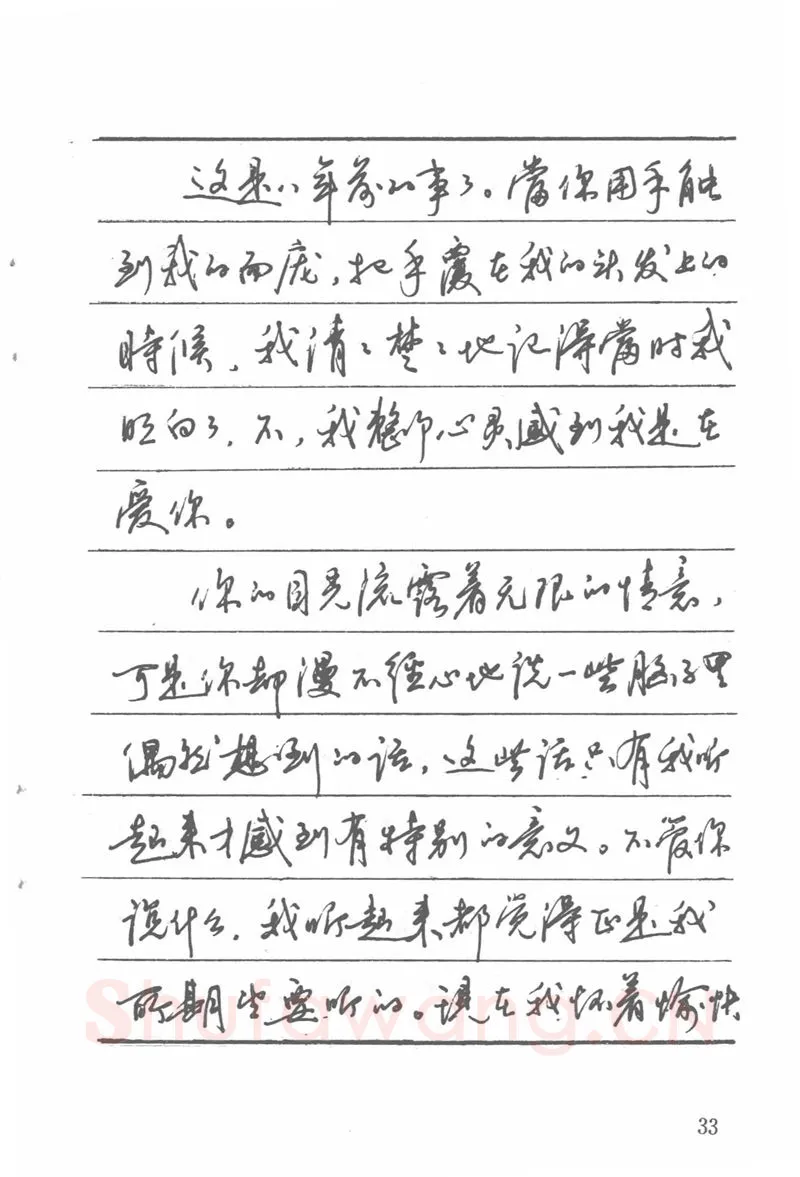 这是八年前的事了。當你用手触
到我的面庞,把手覆在我的头发上的
時候,我清々楚々地记得當时我
明白了,不,我整个心灵感到我是在
爱你。
你的目光流露着无限的情意,
可是你却漫不經心地说一些脑子里
偶然想到的话,这些话只有我听
起来才感到有特别的意义。不管你
说什么,我听起来都觉得正是我
所期望要听的。现在我怀着愉快
Shufawang.CN
33